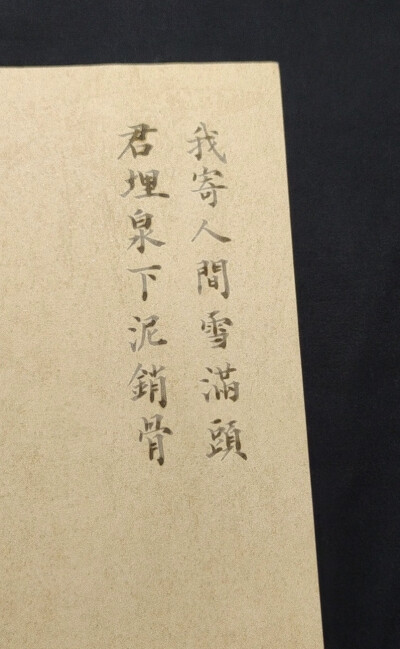 我寄人間雪滿頭
君埋泉下泥銷骨